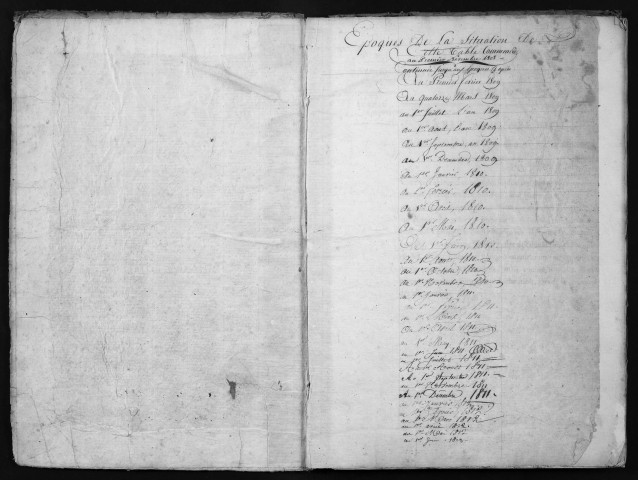 Epoques De La Situation De
Cette Table Commencé
au Premier Décembre 1808
Au Premier février 1809
Au quatorze Mars 1809
au 1er Juillet, l'an 1809
au 1er Aout, l'an 1809
Au 1er Septembre, an 1809
au 1er Décembre, 1809
Au 1er Janvier, 1810
au 1er février, 1810.
au 1er Avril, 1810.
Au 1er Mai, 1810.
1er Juin, 1810.
au 1er Aout, 1810
au 1er Octobre, 1810
au 1er Novembre, 1810
au 1er Janvier, 1811
au 1er février 1811
au 1er Mars, 1811
au 1er Avril 1811
au 1er May, 1811
au 1er Juin 1811
au 1er Juillet 1811
Au 1er Aoust 1811
Au 1er Septembre 1811
au 1er Novembre, 1811
Au 1er Décembre, 1811
au 1er Janvier 1812
au 1er février 1812
au 1er Mars 1812
au 1er Avril 1812
au 1er Mai 1812
au 1er Juin 1812